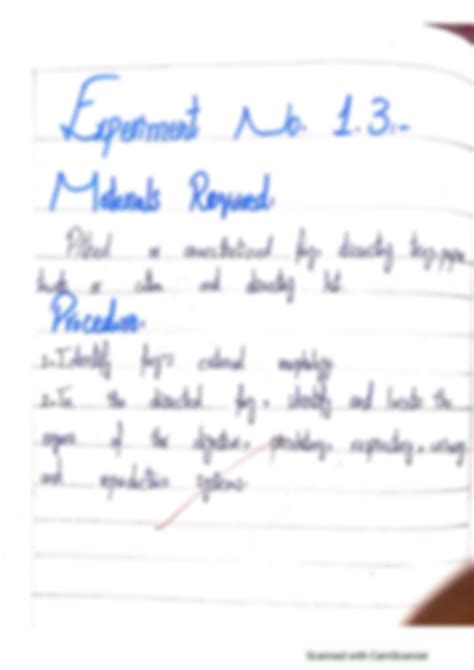 Experiment No. 1.3:-
Materials Required:
Pithed or anaesthetized frog, dissecting tray, paper
towels or cotton and dissecting kit
Procedure:
1. Identify frog's external morphology
2. In the dissected frog, identify and locate the
organs of the digestive, circulatory, respiratory, urinary
and reproductive systems.
Scanned with CamScanner